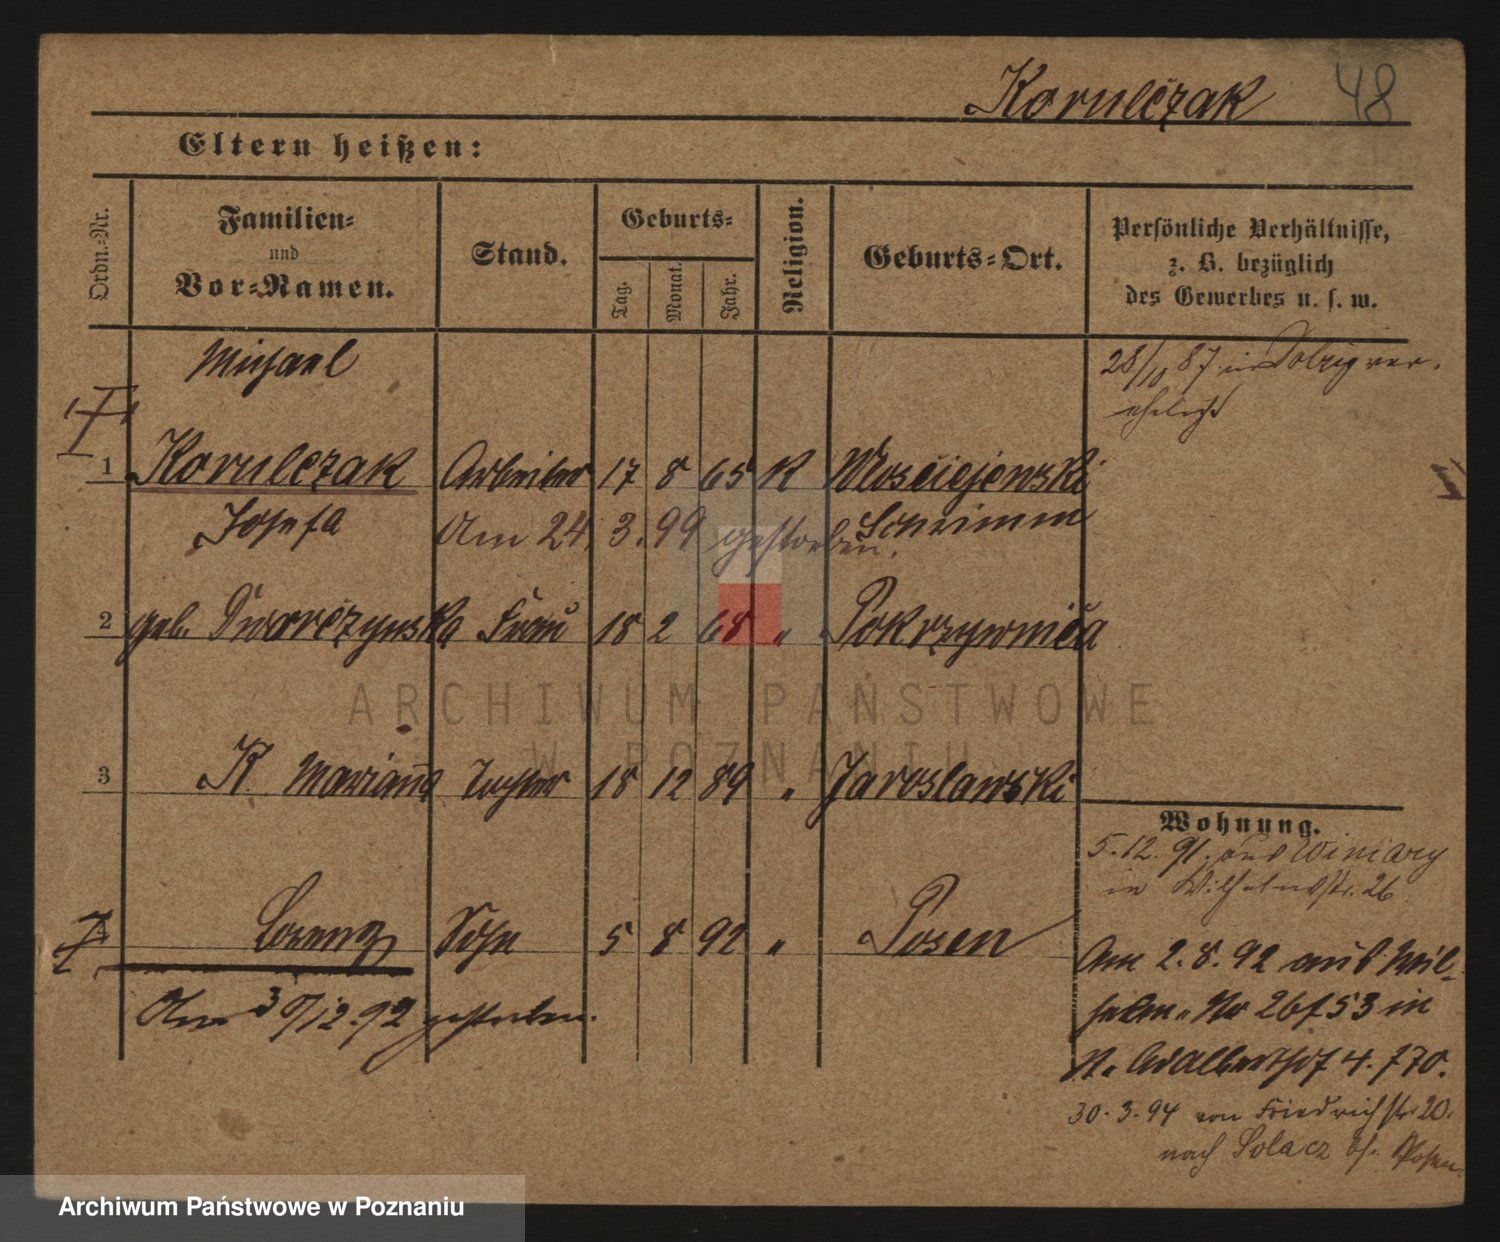 Korulczak 48
Eltern heißen:
Ordn.-Nr.
Familien-
und
Vor-Namen.
Stand.
Geburts-
Tag.
Monat.
Jahr.
Religion.
Geburts-Ort.
Persönliche Verhältnisse,
z. B. bezüglich
des Gewerbes u. s. w.
Michael
28/10 87 in Dolzig ver-
ehelicht
1 Korulczak Arbeiter 17 8 65 K Włościejewski
Josefa Am 24. 3. 99 gestorben. Schrimm
2 geb. Dworczynska Frau 18 2 68 " Pokrzywnica
3 K. Marianna Tochter 18 12 89 " Jaroslawski
Wohnung.
5. 12. 91. aus Winiary
in Wilhelmstr. 26
4 Lorenz Sohn 5 8 92 " Posen
Am 30/12.92 gestorben.
Am 2. 8. 92 aus Wil-
helm. No 26 f 53 in
St. Adalberthof 4. f 70.
30. 3. 94 von Friedrichstr. 20.
nach Solacz bf. Posen.
ARCHIWUM PAŃSTWOWE
W POZNANIU
Archiwum Państwowe w Poznaniu